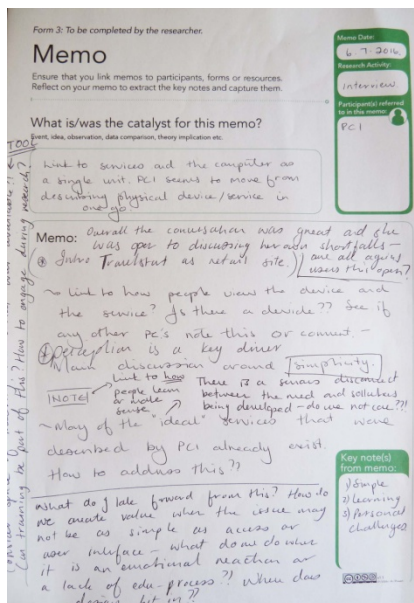 Form 3: To be completed by the researcher.
Memo
Ensure that you link memos to participants, forms or resources.
Reflect on your memo to extract the key notes and capture them.
Memo Date:
6.7.2016
Research Activity:
Interview
Participant(s) referred
to in this memo:
PC1
What is/was the catalyst for this memo?
Event, idea, observation, data comparison, theory implication etc.
Link to services and the computer as
a single unit. PC1 seems to move from
describing physical device/service in
one go.
TOOL
Can training be part of this? How to engage during research?
Memo:
Overall the conversation was great and she
was open to discussing her own shortfalls –
Intro as retail site.
are all ageing
users this open?
~ Link to how people views the device and
the service? Is there a devide?? See if
any other PC's note this or comment. –
Perception is a key
Main discussion around simplicity.
NOTE
Link to how
people learn
or make
sense
There is a serious disconnect
between the need and solutions
being developed – do we not care??!
~ Many of the "ideal" services that were
described by PC1 already exist.
How to address this??
What do I take forward from this? How do
we create value when the issue may
not be as simple as access or
user interface – what do we do when
it is an emotional reaction or
a lack of edu-process?? Where does
design fit in??
Key note(s)
from memo:
1) Simple
2) Learning
3) Personal
challenges